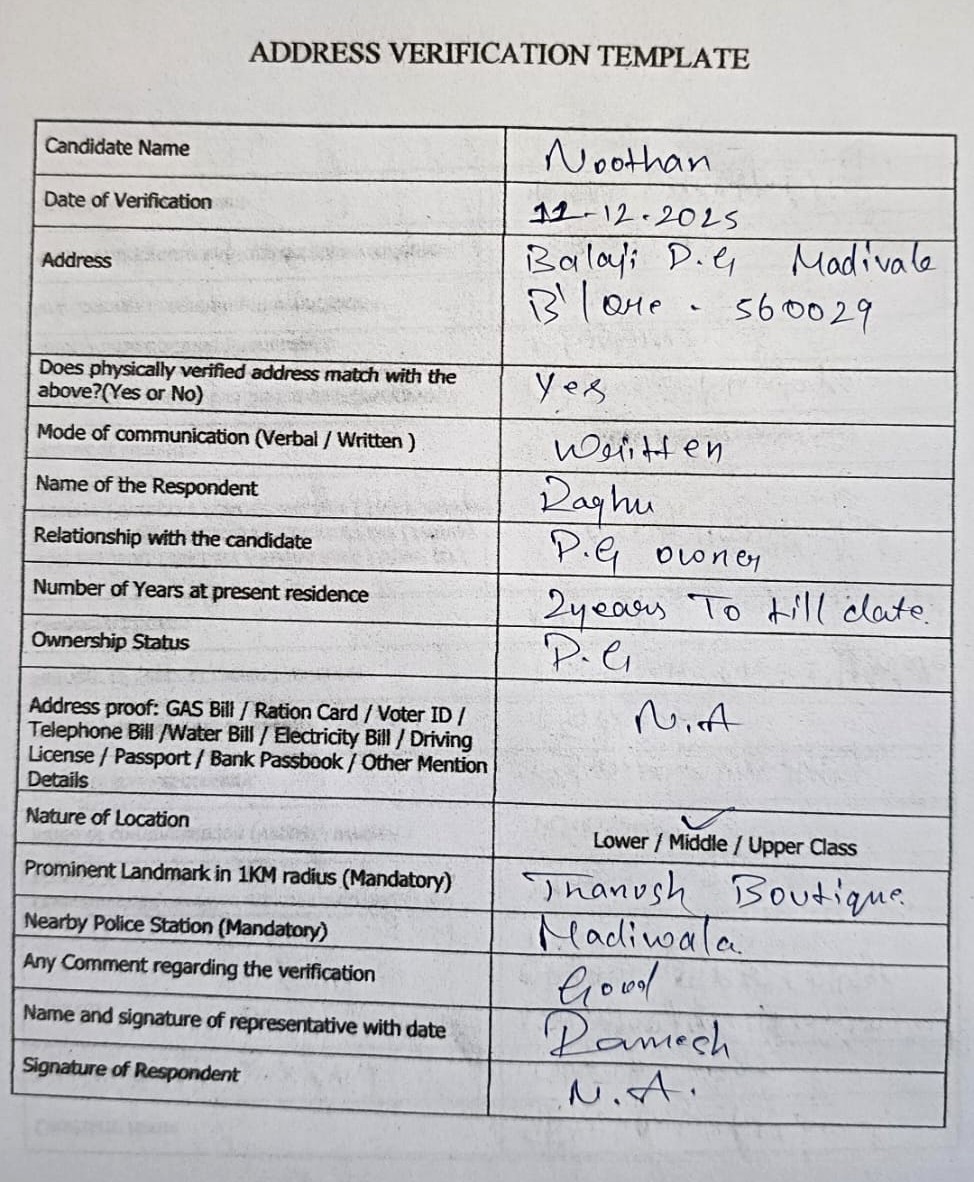 ADDRESS VERIFICATION TEMPLATE
Candidate Name
Noothan
Date of Verification
11-12-2025
Address
Balaji P.G Madivala
B'lore - 560029
Does physically verified address match with the
above?(Yes or No)
Yes
Mode of communication (Verbal / Written )
Written
Name of the Respondent
Raghu
Relationship with the candidate
P.G owner
Number of Years at present residence
2years To till date.
Ownership Status
P.G
Address proof: GAS Bill / Ration Card / Voter ID /
Telephone Bill /Water Bill / Electricity Bill / Driving
License / Passport / Bank Passbook / Other Mention
Details
N.A
Nature of Location
Lower / Middle / Upper Class
Prominent Landmark in 1KM radius (Mandatory)
Thanush Boutique.
Nearby Police Station (Mandatory)
Madiwala
Any Comment regarding the verification
Good
Name and signature of representative with date
Ramesh
Signature of Respondent
N.A.